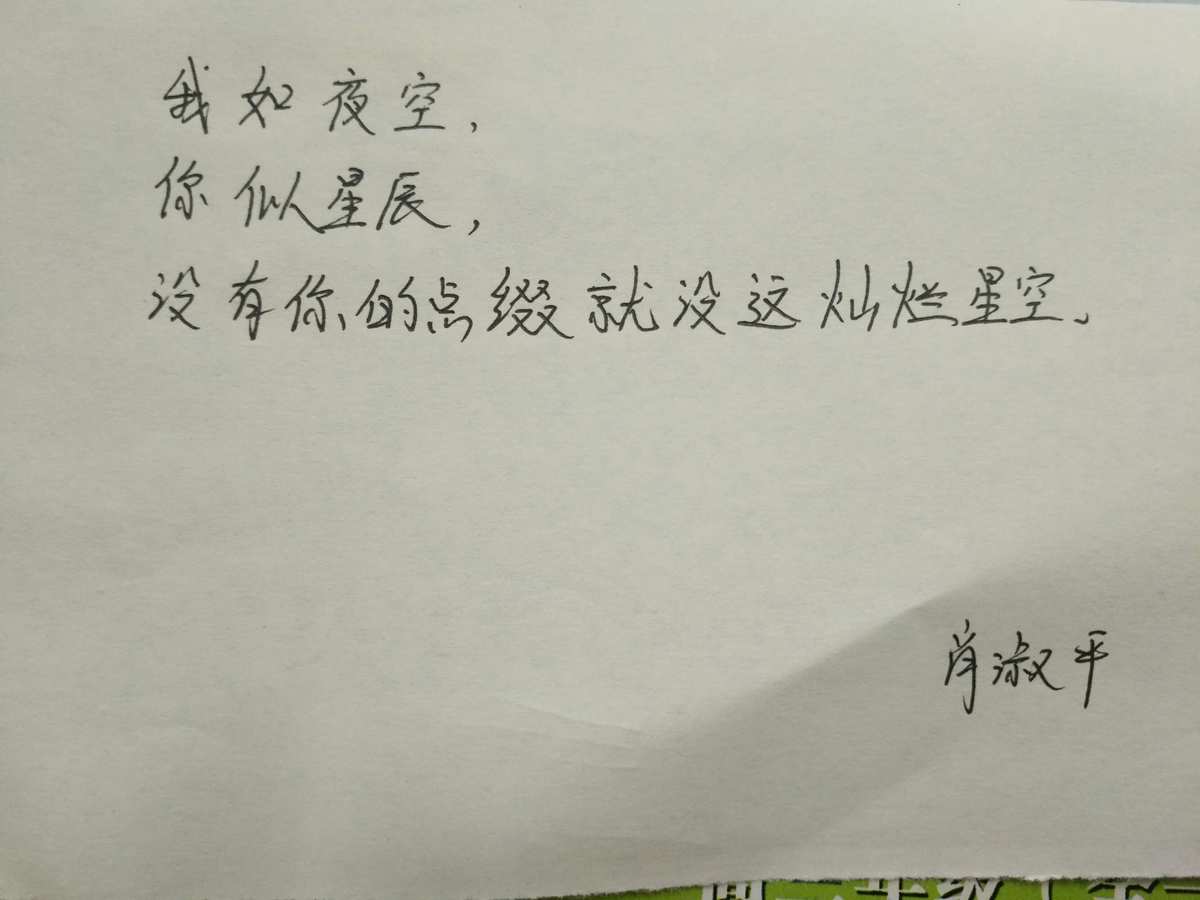 我如夜空,
你似星辰,
没有你的点缀就没这灿烂星空、
肖淑平